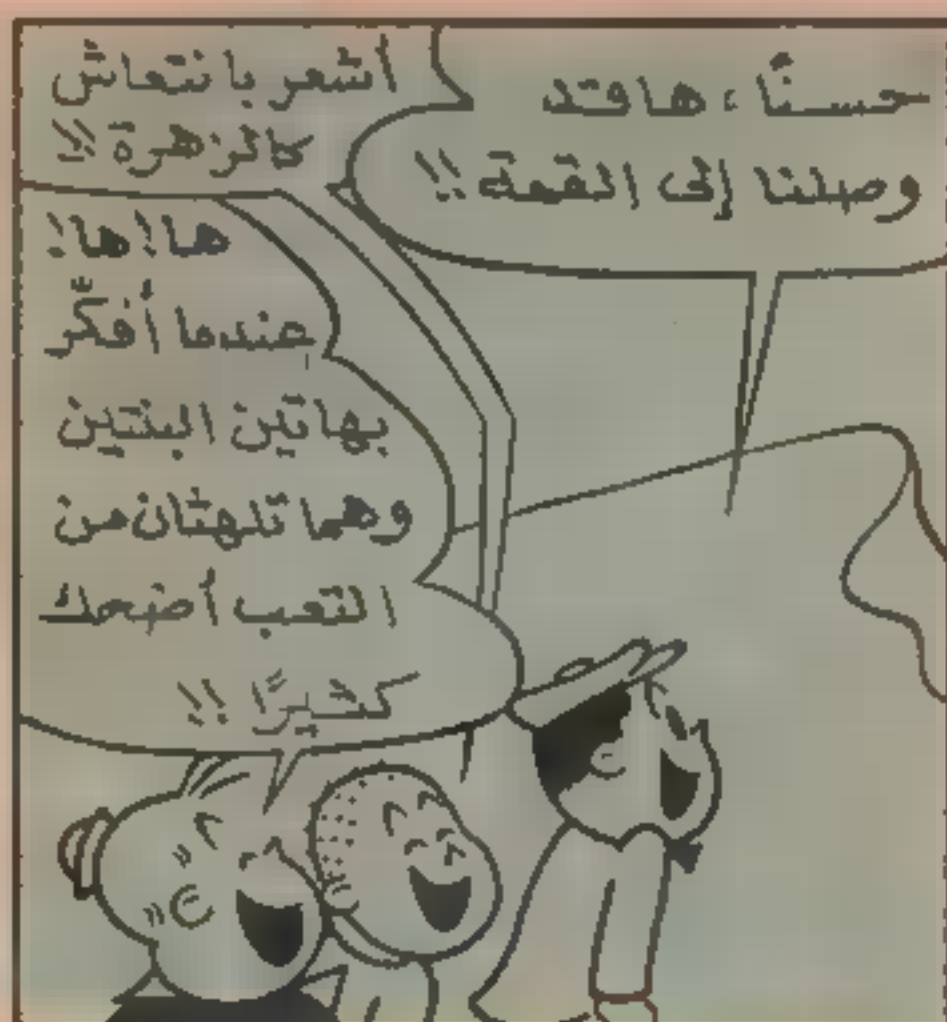 حسنًا، ها قد
وصلنا إلى القمة!!
أشعر بانتعاش
كالزهرة!!
ها!ها!
عندما أفكّر
بهاتين البنتين
وهما تلهثان من
التعب أضحك
كثيرًا!!